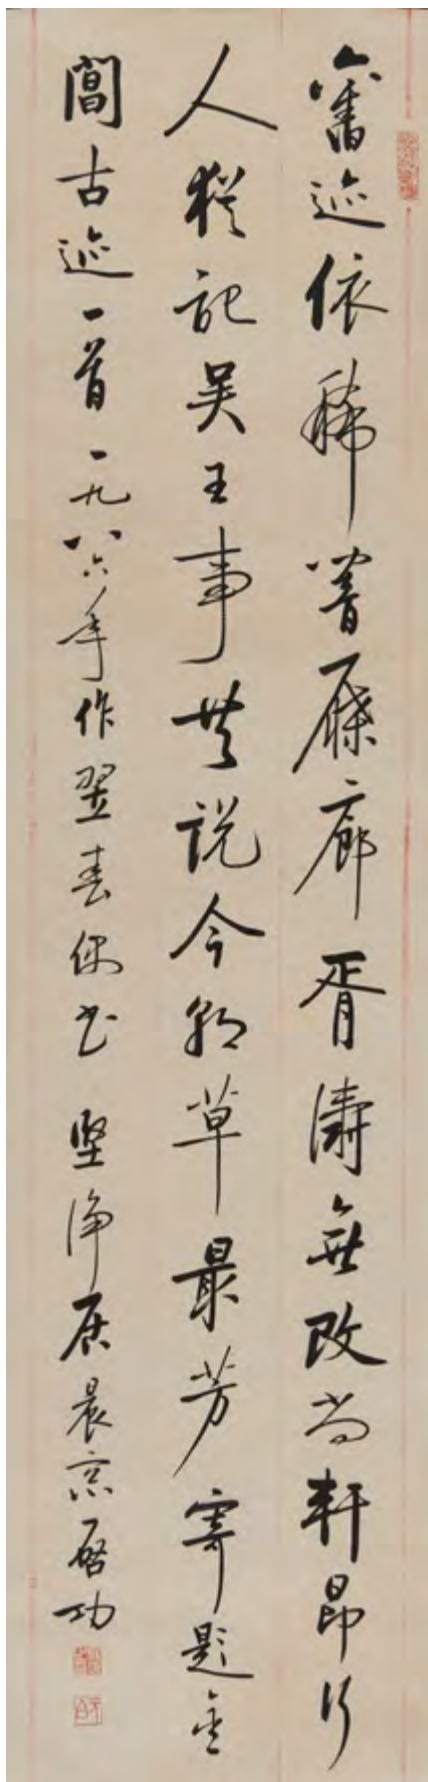 舊迹依稀響屧廊胥濤無改尚軒昂行
人猶記吳王事共說今朝草最芳寄題金
閶古迹一首一九八六年作翌春偶书 堅淨居晨窓啓功